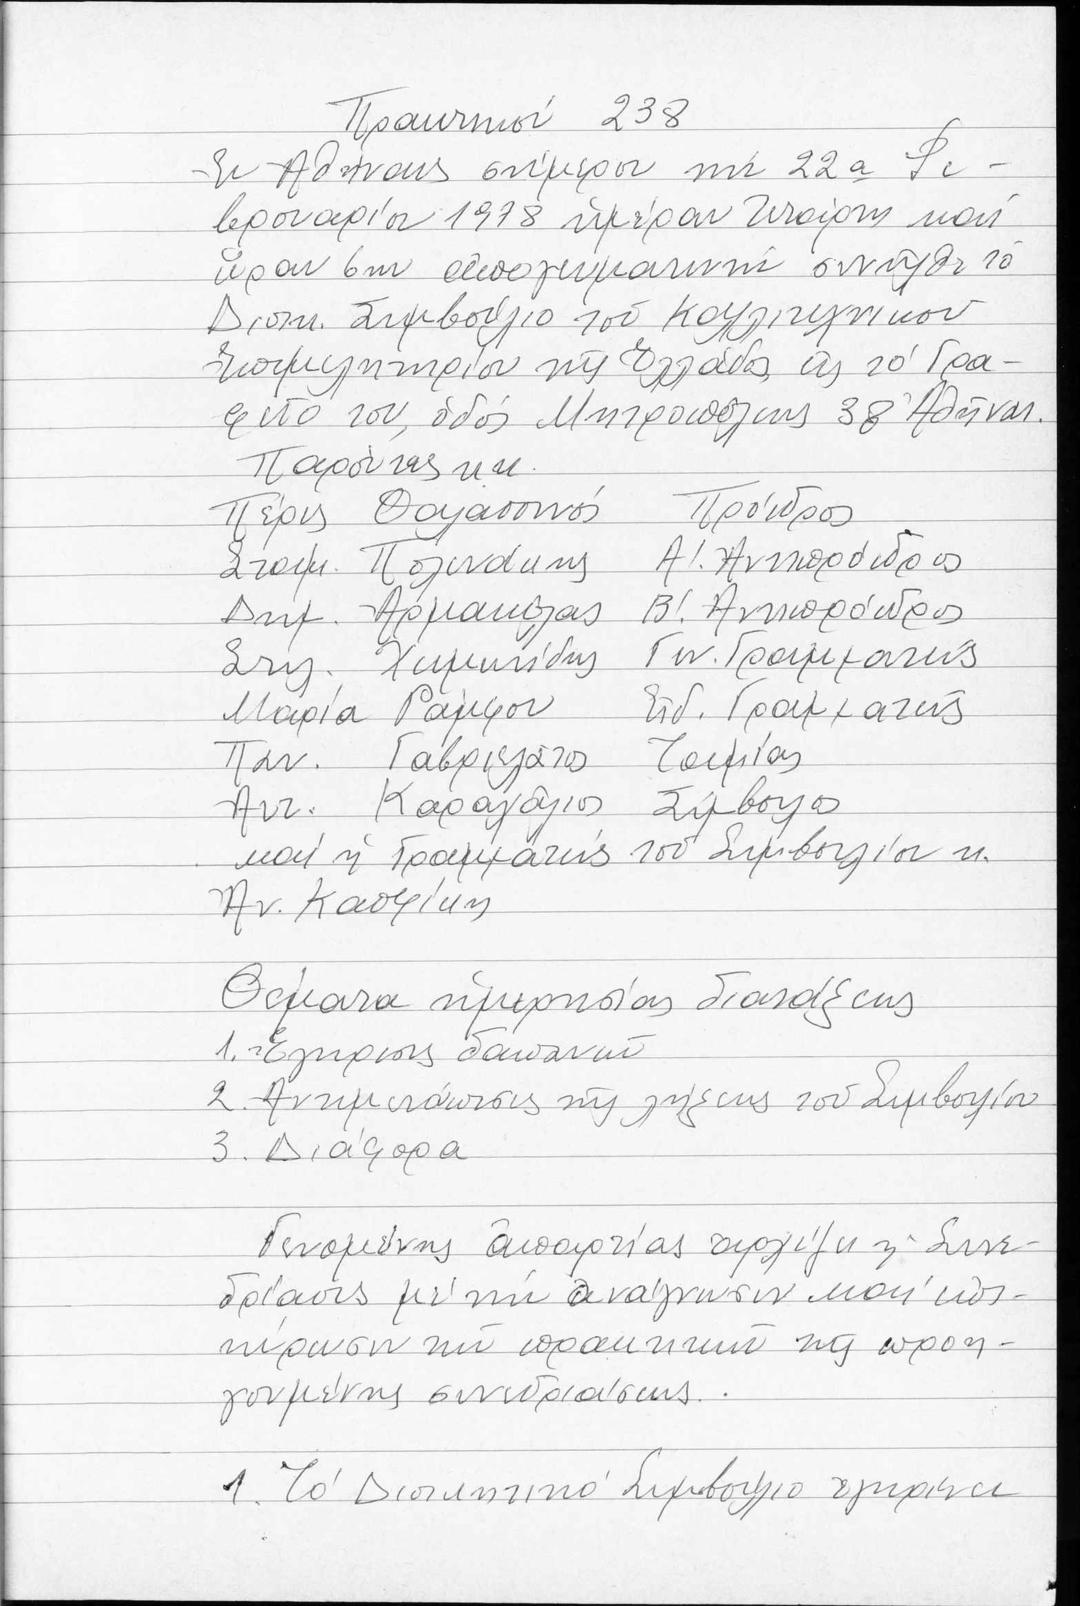 Πρακτικόν 238
Ἐν Ἀθήναις σήμερον τήν 22α Φε-
βρουαρίου 1978 ἡμέραν Τετάρτη καί
ὥραν 6ην ἀπογευματινήν συνῆλθε τό
Διοικ. Συμβούλιο τοῦ Καλλιτεχνικοῦ
Ἐπιμελητηρίου τῆς Ἑλλάδος εἰς τό Γρα-
φεῖο του, ὁδός Μητροπόλεως 38 Ἀθῆναι.
Παρόντες κ.κ.
Πέρις Θαλασσινός Πρόεδρος
Σταμ. Πολενάκης Α΄. Ἀντιπρόεδρος
Δημ. Ἀρμακόλας Β΄. Ἀντιπρόεδρος
Στυλ. Γεν. Γραμματεύς
Μαρία Ράμφου Εἰδ. Γραμματεύς
Παν. Γαβριελάτος Ταμίας
Ἀντ. Καραχάλιος Σύμβουλος
καί ἡ Γραμματεύς τοῦ Συμβουλίου κ.
Ἀν. Καπρίκη
Θέματα ἡμερησίας διατάξεως
1. Ἔγκρισις δαπανῶν
2. Ἀντιμετώπισις τῆς λήξεως τοῦ Συμβουλίου
3. Διάφορα
Γενομένης ἀπαρτίας ἀρχίζει ἡ Συνε-
δρίασις μέ τήν ἀνάγνωσιν καί ἐπι-
κύρωσιν τῶν πρακτικῶν τῆς προη-
γουμένης συνεδριάσεως.
1. Τό Διοικητικό Συμβούλιο ἐγκρίνει